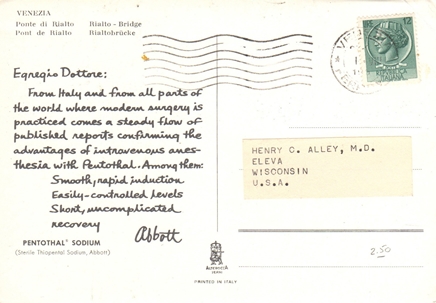 VENEZIA
Ponte di Rialto Rialto - Bridge
Pont de Rialto Rialtobrücke
Egregio Dottore:
From Italy and from all parts of
the world where modern surgery is
practiced comes a steady flow of
published reports confirming the
advantages of intravenous anes-
thesia with Pentothal. Among them:
Smooth, rapid induction
Easily-controlled levels
Short, uncomplicated
recovery
Abbott
PENTOTHAL® SODIUM
(Sterile Thiopental Sodium, Abbott)
HENRY C. ALLEY, M.D.
ELEVA
WISCONSIN
U.S.A.
2.50
PRINTED IN ITALY